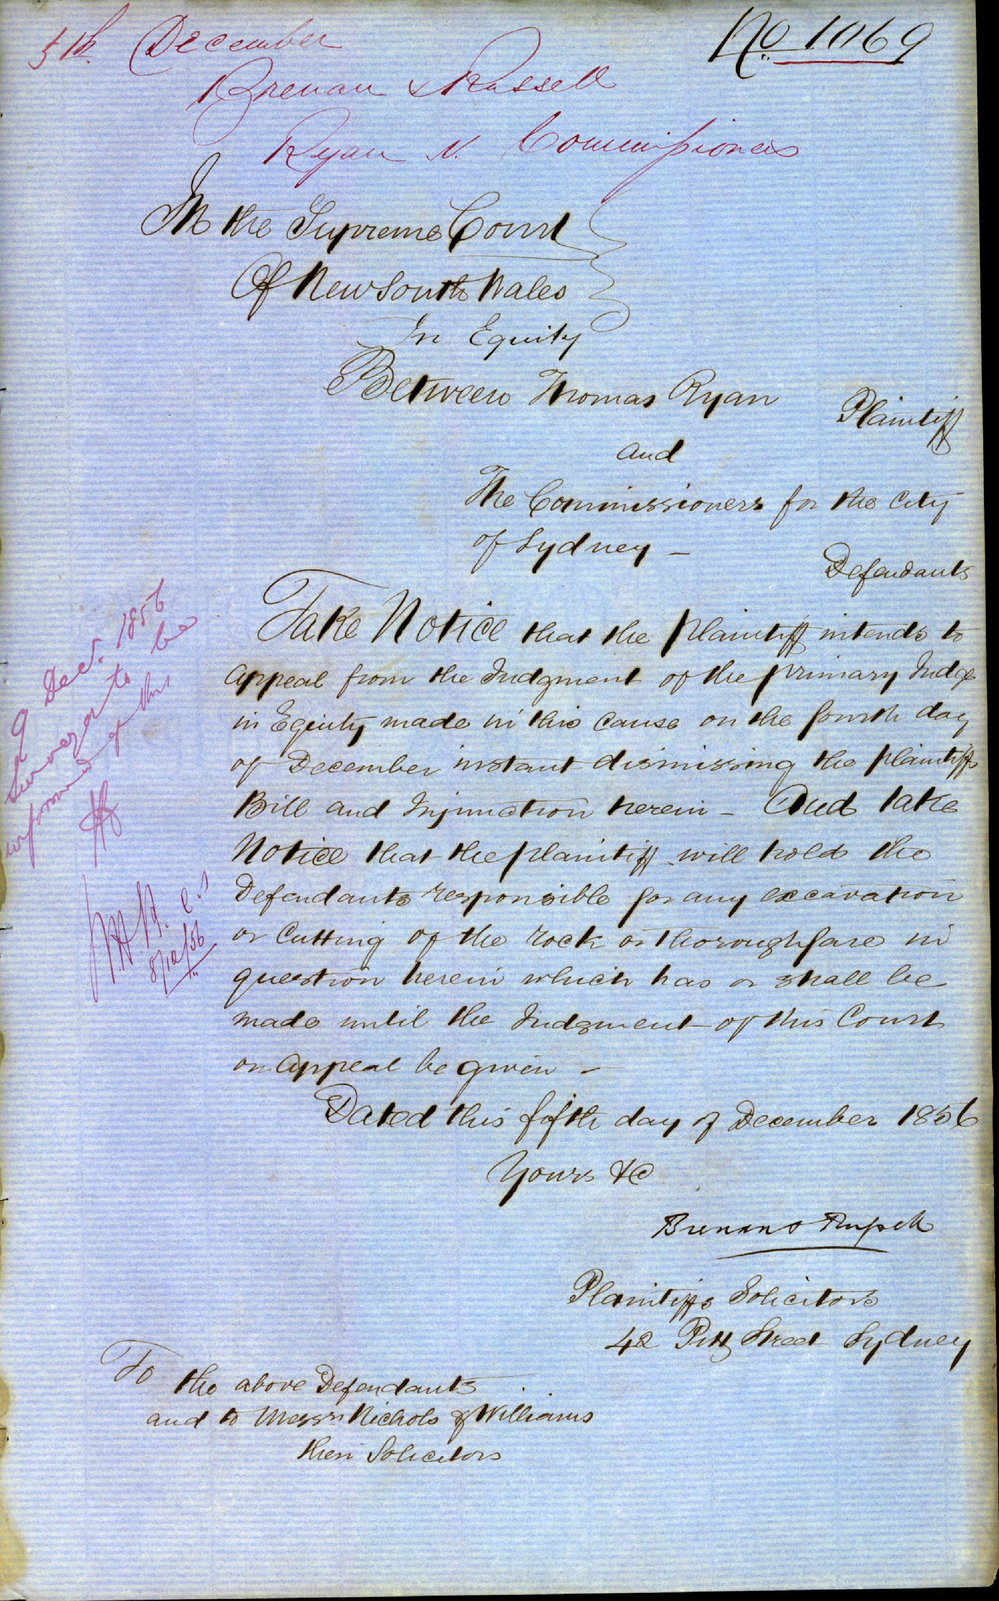 5th December
No 1069
Brenan & Russell
Ryan v. Commissioners
In the Supreme Court
Of New South Wales
In Equity
Between Thomas Ryan
Plaintiff
and
The Commissioners for the City
of Sydney –
Defendants
Take Notice that the plaintiff intends to
appeal from the Judgment of the primary Judge
in Equity made in this cause on the fourth day
of December instant dismissing the plaintiffs
Bill and Injunction herein – And take
Notice that the plaintiff will hold the
Defendants responsible for any excavation
or Cutting of the rock or thoroughfare in
question herein which has or shall be
made until the Judgment of this Court
on appeal be given –
Dated this fifth day of December 1856
Yours &c
Brenan & Russell
Plaintiffs Solicitors
42 Pitt Street Sydney
To the above Defendants
and to Messrs Nichols & Williams
their Solicitors
9 Dec. 1856
Surveyor to be
informed of this
8/12/56